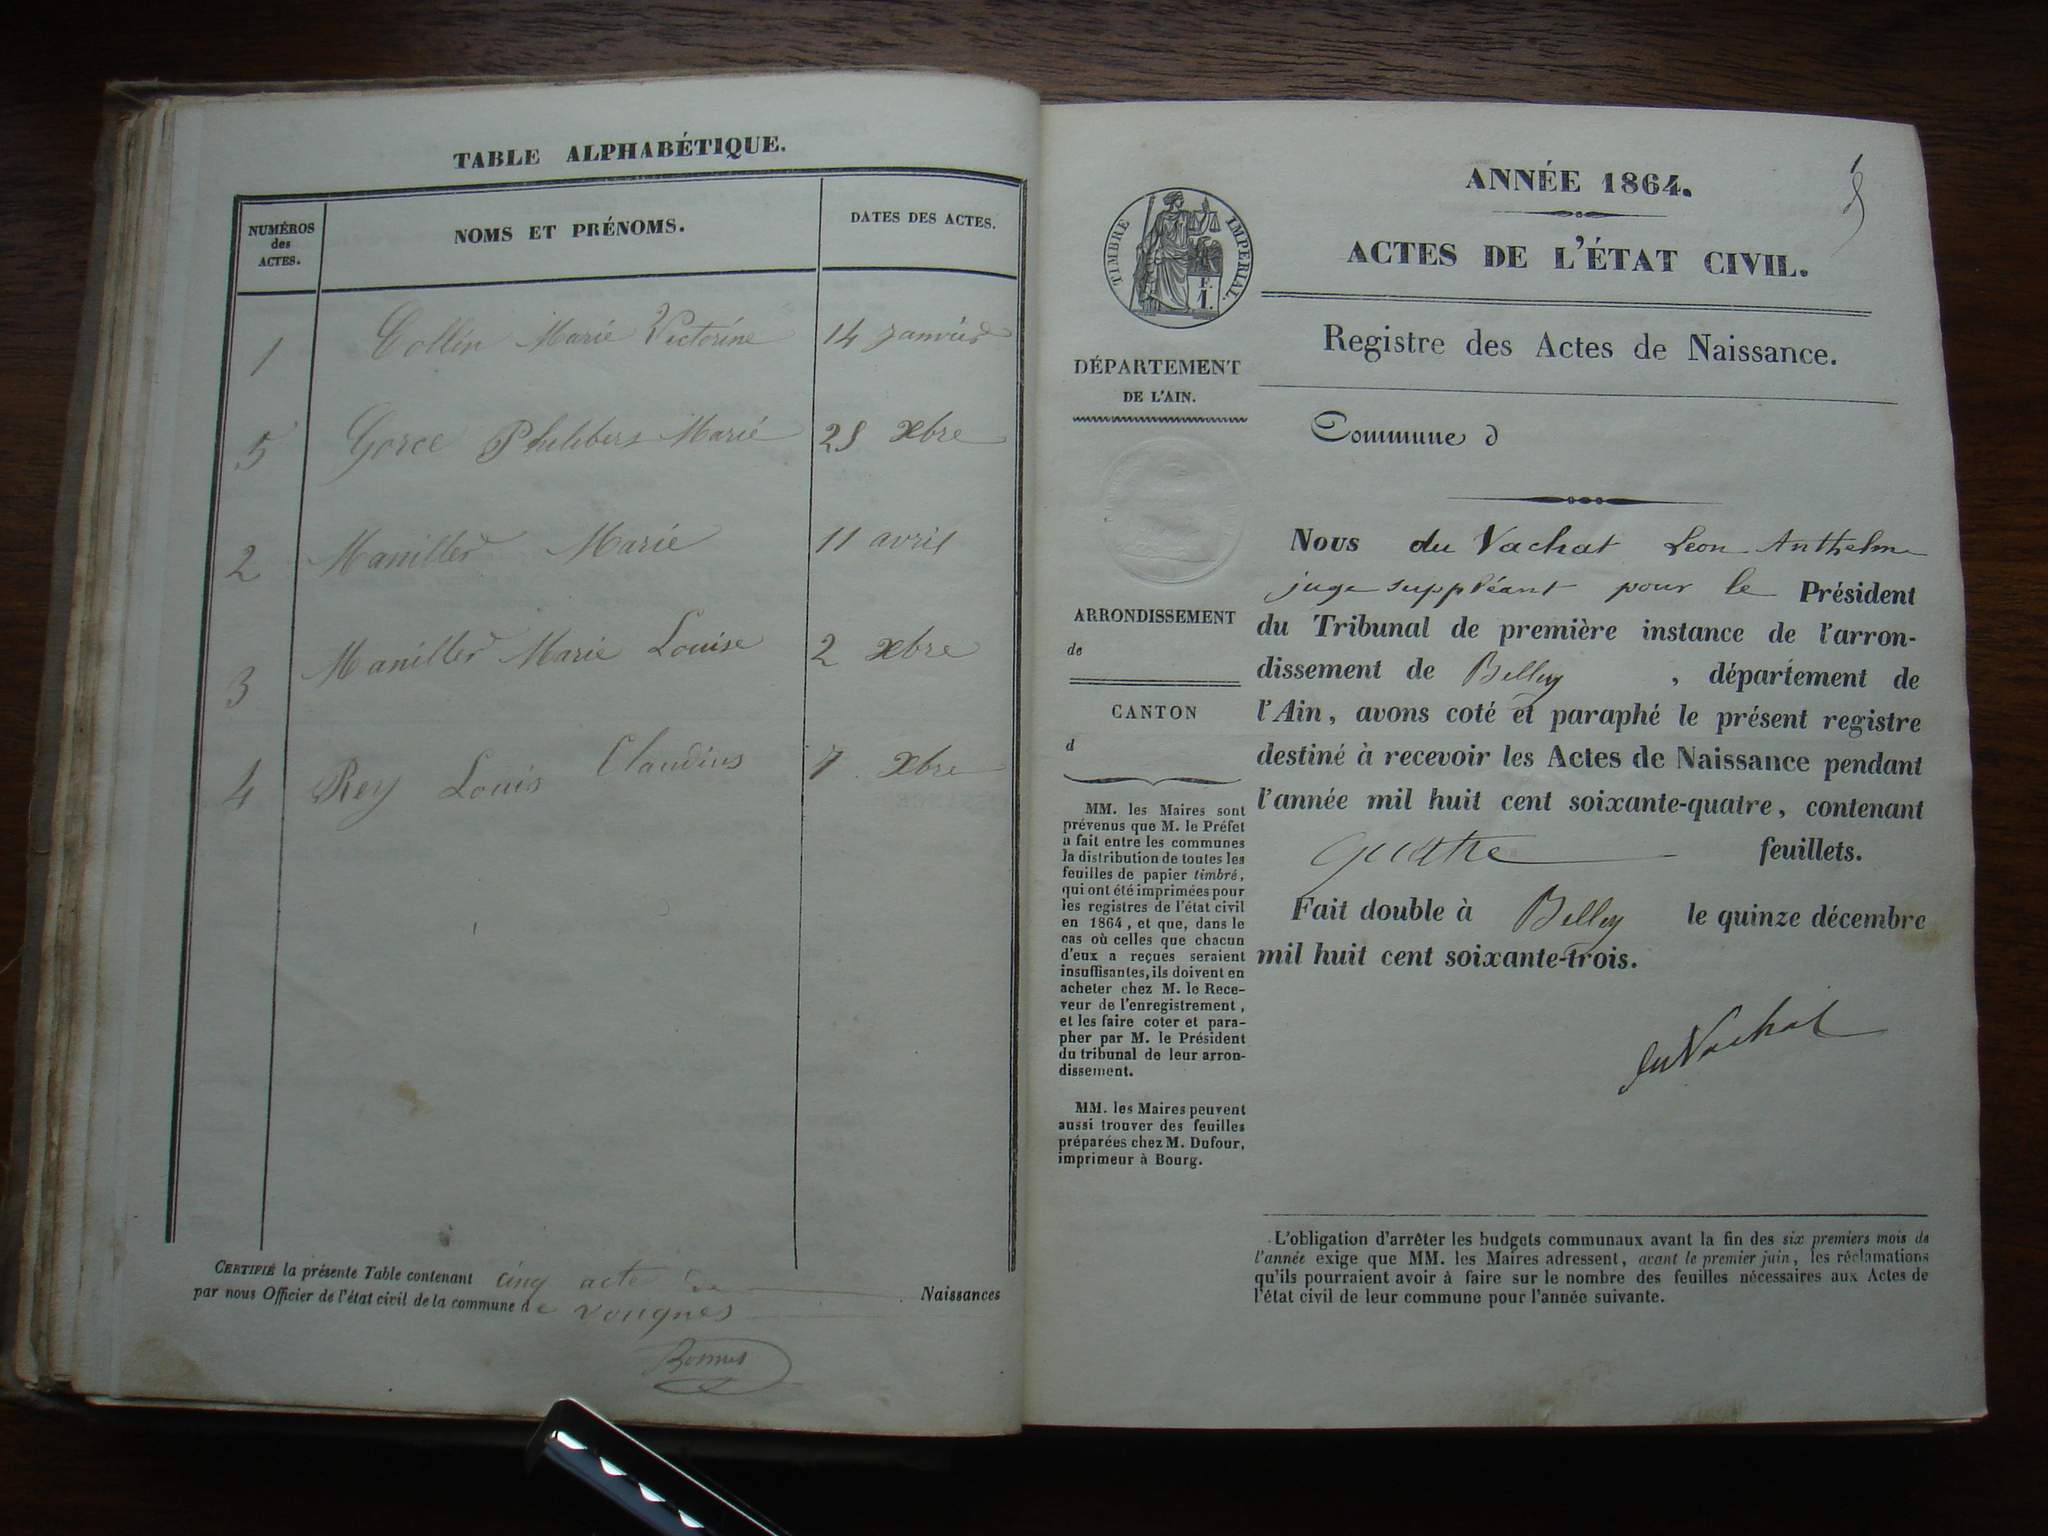 TABLE ALPHABÉTIQUE.
NUMÉROS
des
ACTES.
NOMS ET PRÉNOMS.
DATES DES ACTES.
1 Collin Marie Victorine 14 janvier
5 Gorce Philibert Marie 25 xbre
2 Maniller Marie 11 avril
3 Maniller Marie Louise 2 xbre
4 Rey Louis Claudius 7 xbre
CERTIFIÉ la présente Table contenant cinq acte de Naissances
par nous Officier de l'état civil de la commune de vongnes
ANNÉE 1864.
ACTES DE L'ÉTAT CIVIL.
TIMBRE IMPERIAL.
F.
1.
Registre des Actes de Naissance.
DÉPARTEMENT
DE L'AIN.
Commune d
ARRONDISSEMENT
de
CANTON
d
MM. les Maires sont
prévenus que M. le Préfet
a fait entre les communes
la distribution de toutes les
feuilles de papier timbré,
qui ont été imprimées pour
les registres de l'état civil
en 1864, et que, dans le
cas où celles que chacun
d'eux a reçues seraient
insuffisantes, ils doivent en
acheter chez M. le Rece-
veur de l'enregistrement,
et les faire coter et para-
pher par M. le Président
du tribunal de leur arron-
dissement.
MM. les Maires peuvent
aussi trouver des feuilles
préparées chez M. Dufour,
imprimeur à Bourg.
Nous du Vachat Leon Anthelme
juge suppléant pour le Président
du Tribunal de première instance de l'arron-
dissement de Belley, département de
l'Ain, avons coté et paraphé le présent registre
destiné à recevoir les Actes de Naissance pendant
l'année mil huit cent soixante-quatre, contenant
quatre feuillets.
Fait double à Belley le quinze décembre
mil huit cent soixante-trois.
du Vachat
L'obligation d'arrêter les budgets communaux avant la fin des six premiers mois de
l'année exige que MM. les Maires adressent, avant le premier juin, les réclamations
qu'ils pourraient avoir à faire sur le nombre des feuilles nécessaires aux Actes de
l'état civil de leur commune pour l'année suivante.